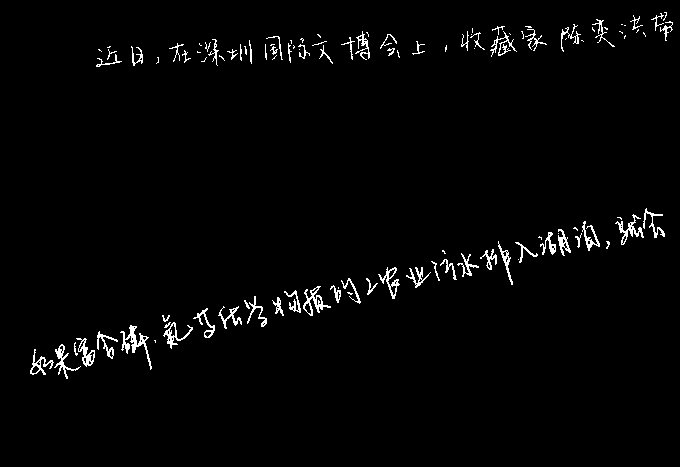 近日,在深圳国际文博会上,收藏家陈奕洪带
如果富含磷、氮等化学物质的工农业污水排入湖泊,就会